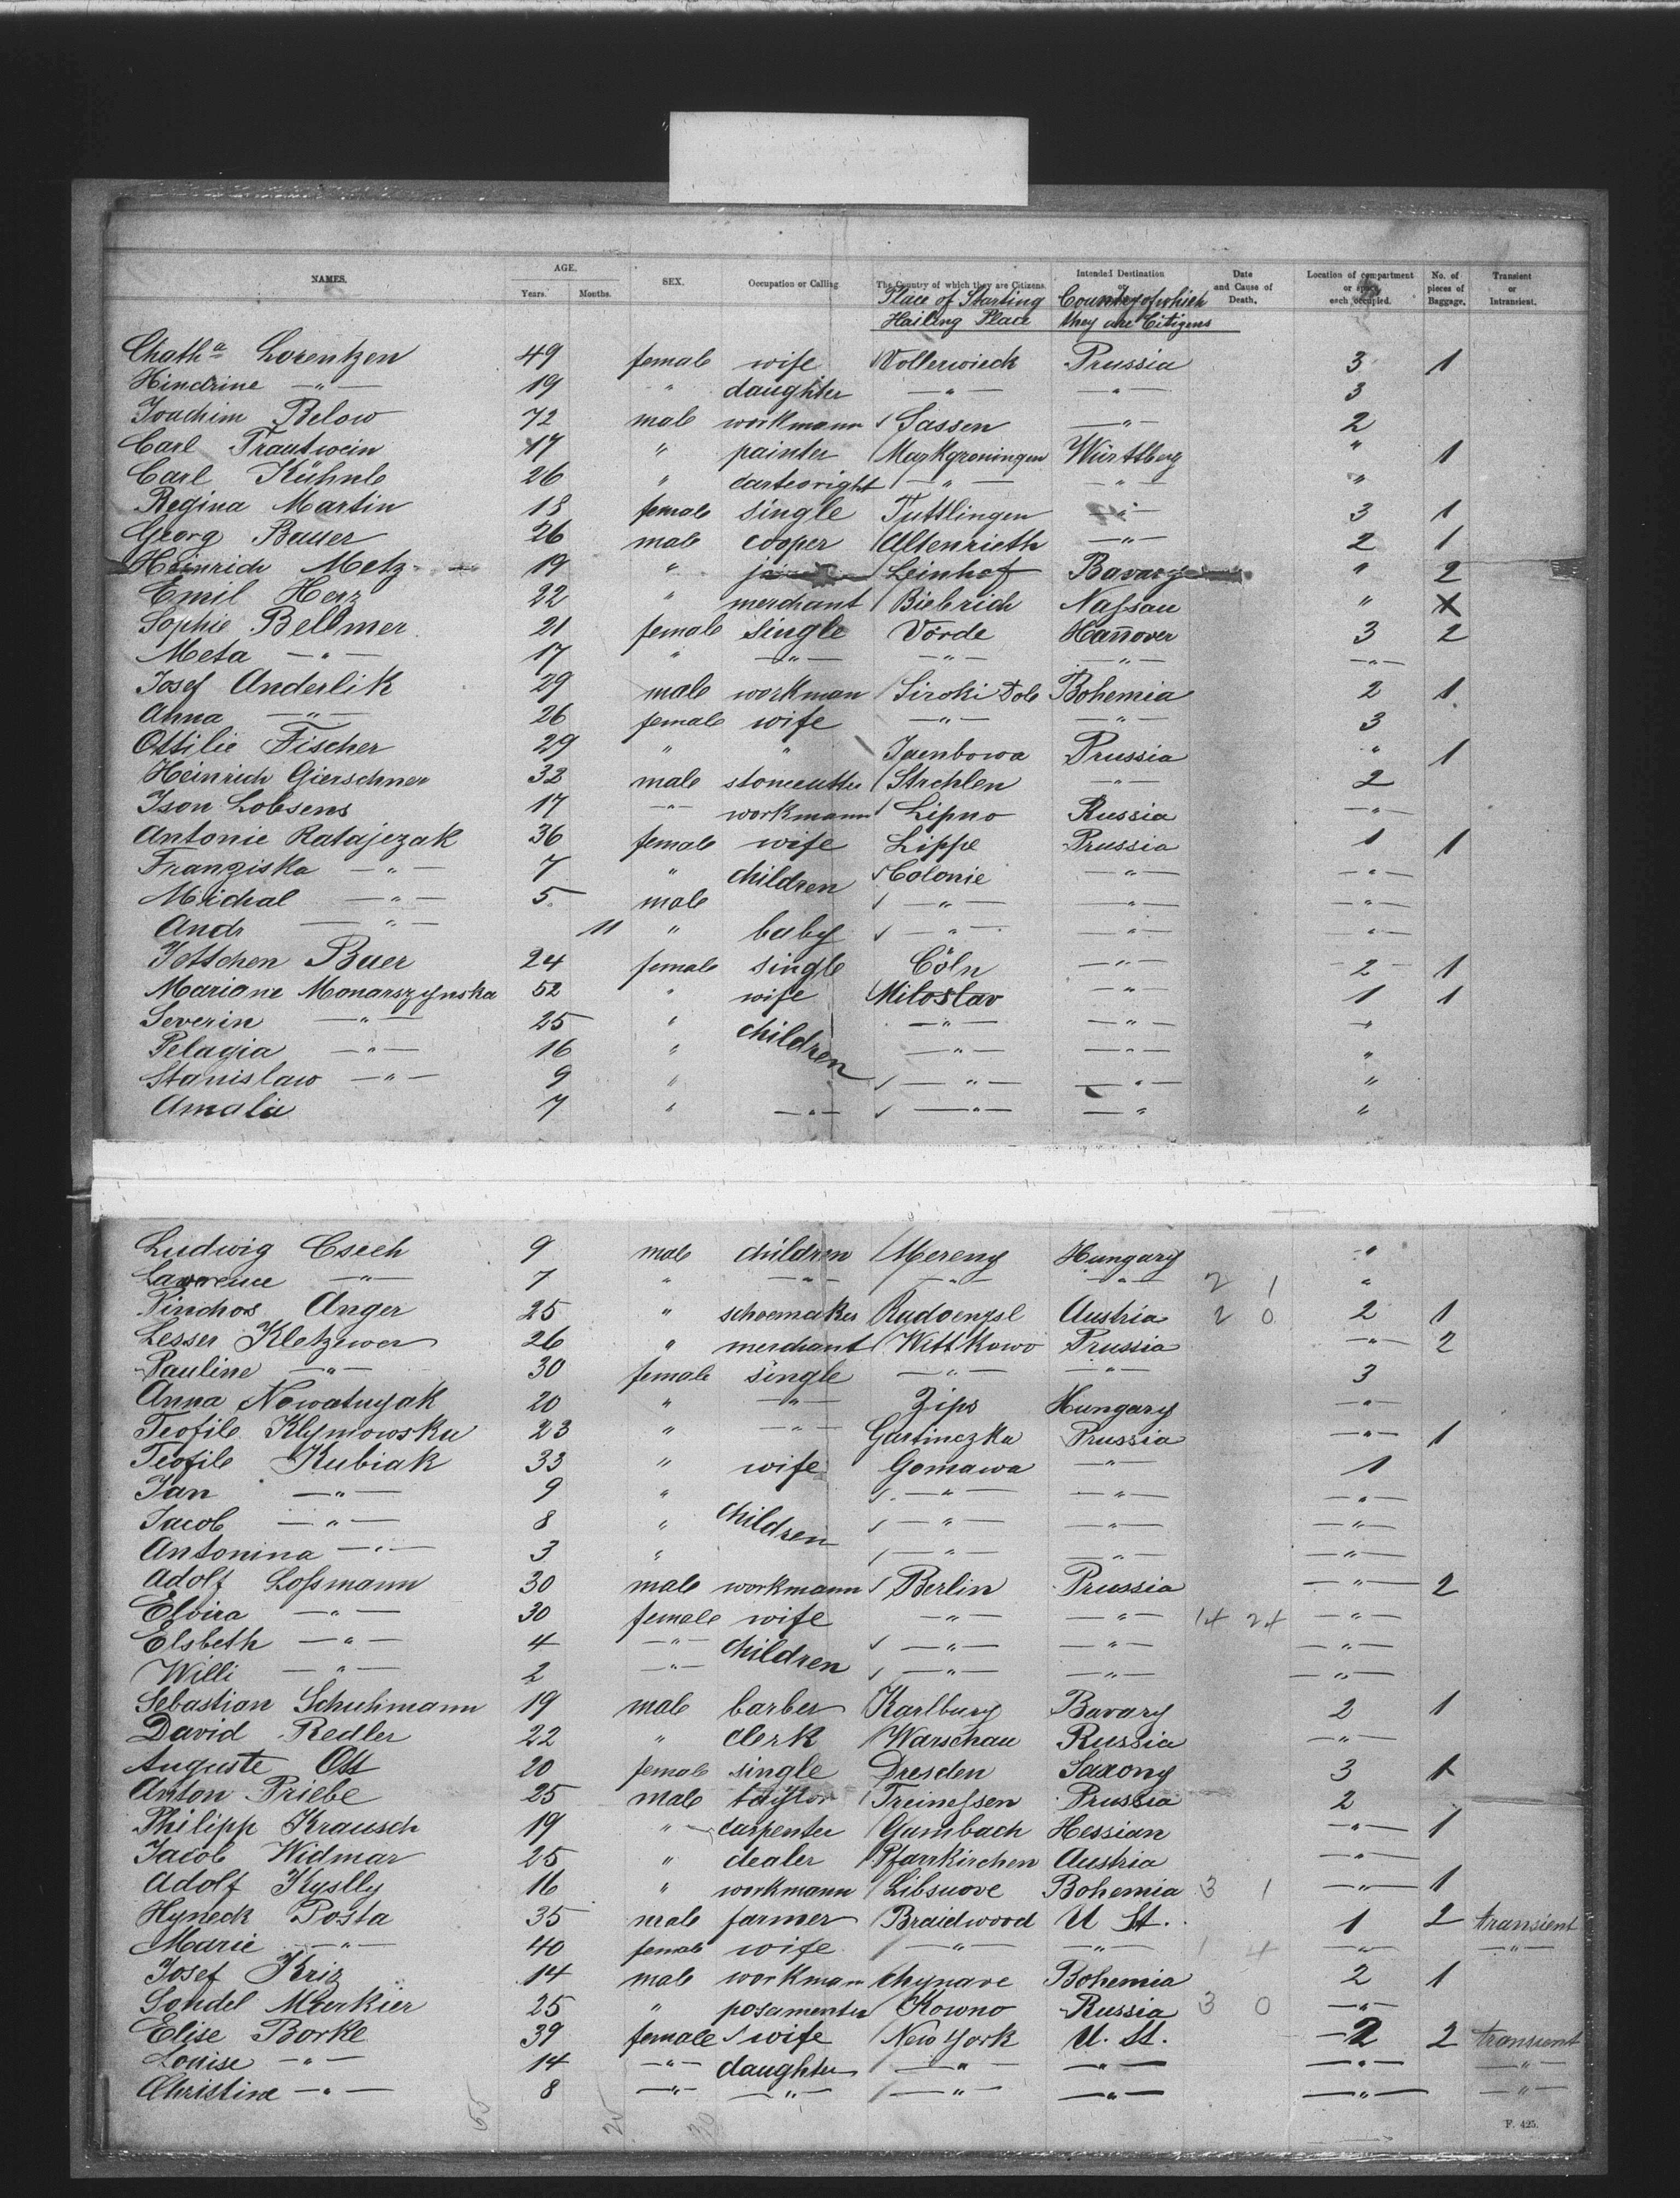 NAMES. AGE. Years. Months. SEX. Occupation or Calling The Country of which they are Citizens. Intended Destination or Date and Cause of Death. Location of compartment or space each occupied. No. of pieces of Baggage. Transient or Intransient.
Place of Starting Country of which
Hailing Place they are Citizens
Chatha Lorentzen 49 female wife Vollerwieck Prussia 3 1
Hindrine —"— 19 " daughter —"— —"— 3
Joachim Below 72 male workmann Sassen —"— 2
Carl Trautwein 17 " painter Markgroningen Württberg " 1
Carl Kühnle 26 " carteoright —"— —"— "
Regina Martin 18 female single Tuttlingen —"— 3 1
Georg Bauer 26 male cooper Altenrieth —"— 2 1
Heinrich Metz 19 " Leinhof Bavary " 2
Emil Herz 22 " merchant Biebrich Nassau "
Sophie Bellmer 21 female single Vörde Hannover 3 2
Meta —"— 17 " —"— —"— —"— —"—
Josef Anderlik 29 male workman Siroki Dol Bohemia 2 1
Anna —"— 26 female wife —"— —"— 3
Ottilie Fischer 29 " " Jaenbowa Prussia " 1
Heinrich Gierschner 32 male stonecutter Strehlen —"— 2
Ison Lobsens 17 —"— workmann Lipno Russia —"—
Antonie Ratajezak 36 female wife Lippe Prussia 1 1
Franziska —"— 7 " children Colonie —"— —"—
Michal —"— 5 male —"— —"— —"—
Andr —"— 11 " baby —"— —"— —"—
Jettchen Buer 24 female single Cöln —"— 2 1
Mariane Monarszynska 52 " wife Miloslav —"— 1 1
Severin —"— 25 " children —"— —"— "
Pelagia —"— 16 " —"— —"— "
Stanislaw —"— 9 " —"— —"— "
Amalia 7 " —"— —"— —"— "
Ludwig Csech 9 male children Mereny Hungary "
Lawrence —"— 7 " —"— —"— —"— 2 1 "
Pinchos Anger 25 " schoemaker Radoengsl Austria 2 0 2 1
Lesser Kletzewer 26 " merchant Wittkowo Prussia —"— 2
Pauline —"— 30 female single —"— —"— 3
Anna Nowatnyak 20 " —"— Zips Hungary —"—
Teofile Klymowska 23 " —"— Gartinczka Prussia —"— 1
Teofile Kubiak 33 " wife Gomawa —"— 1
Jan —"— 9 " —"— —"— —"—
Jacob —"— 8 " children —"— —"— —"—
Antonina —"— 3 " —"— —"— —"—
Adolf Lossmann 30 male workmann Berlin Prussia —"— 2
Elvira —"— 30 female wife —"— —"— 14 24 —"—
Elsbeth —"— 4 —"— children —"— —"— —"—
Willi —"— 2 —"— —"— —"— —"—
Sebastian Schuhmann 19 male barber Karlburg Bavary 2 1
David Redler 22 " clerk Warschau Russia —"—
Auguste Ott 20 female single Dresden Saxony 3 1
Anton Priebe 25 male taylor Treinessen Prussia 2
Philipp Krausch 19 " carpenter Gambach Hessian —"— 1
Jacob Widmar 25 " dealer Pfarrkirchen Austria —"—
Adolf Kyslly 16 " workmann Libsuove Bohemia 3 1 —"— 1
Hyneck Posta 35 male farmer Braidwood U St. 1 2 transient
Marie —"— 40 female wife —"— —"— 1 4 —"— —"—
Josef Kriz 14 male workman Chynave Bohemia 2 1
Sondel Mierkier 25 " posamenter Kowno Russia 3 0 —"—
Elise Borke 39 female wife New York U. St. 2 2 transient
Louise —"— 14 —"— daughter —"— —"— —"— —"—
Christine —"— 8 —"— —"— —"— —"— —"— —"—
F. 425.